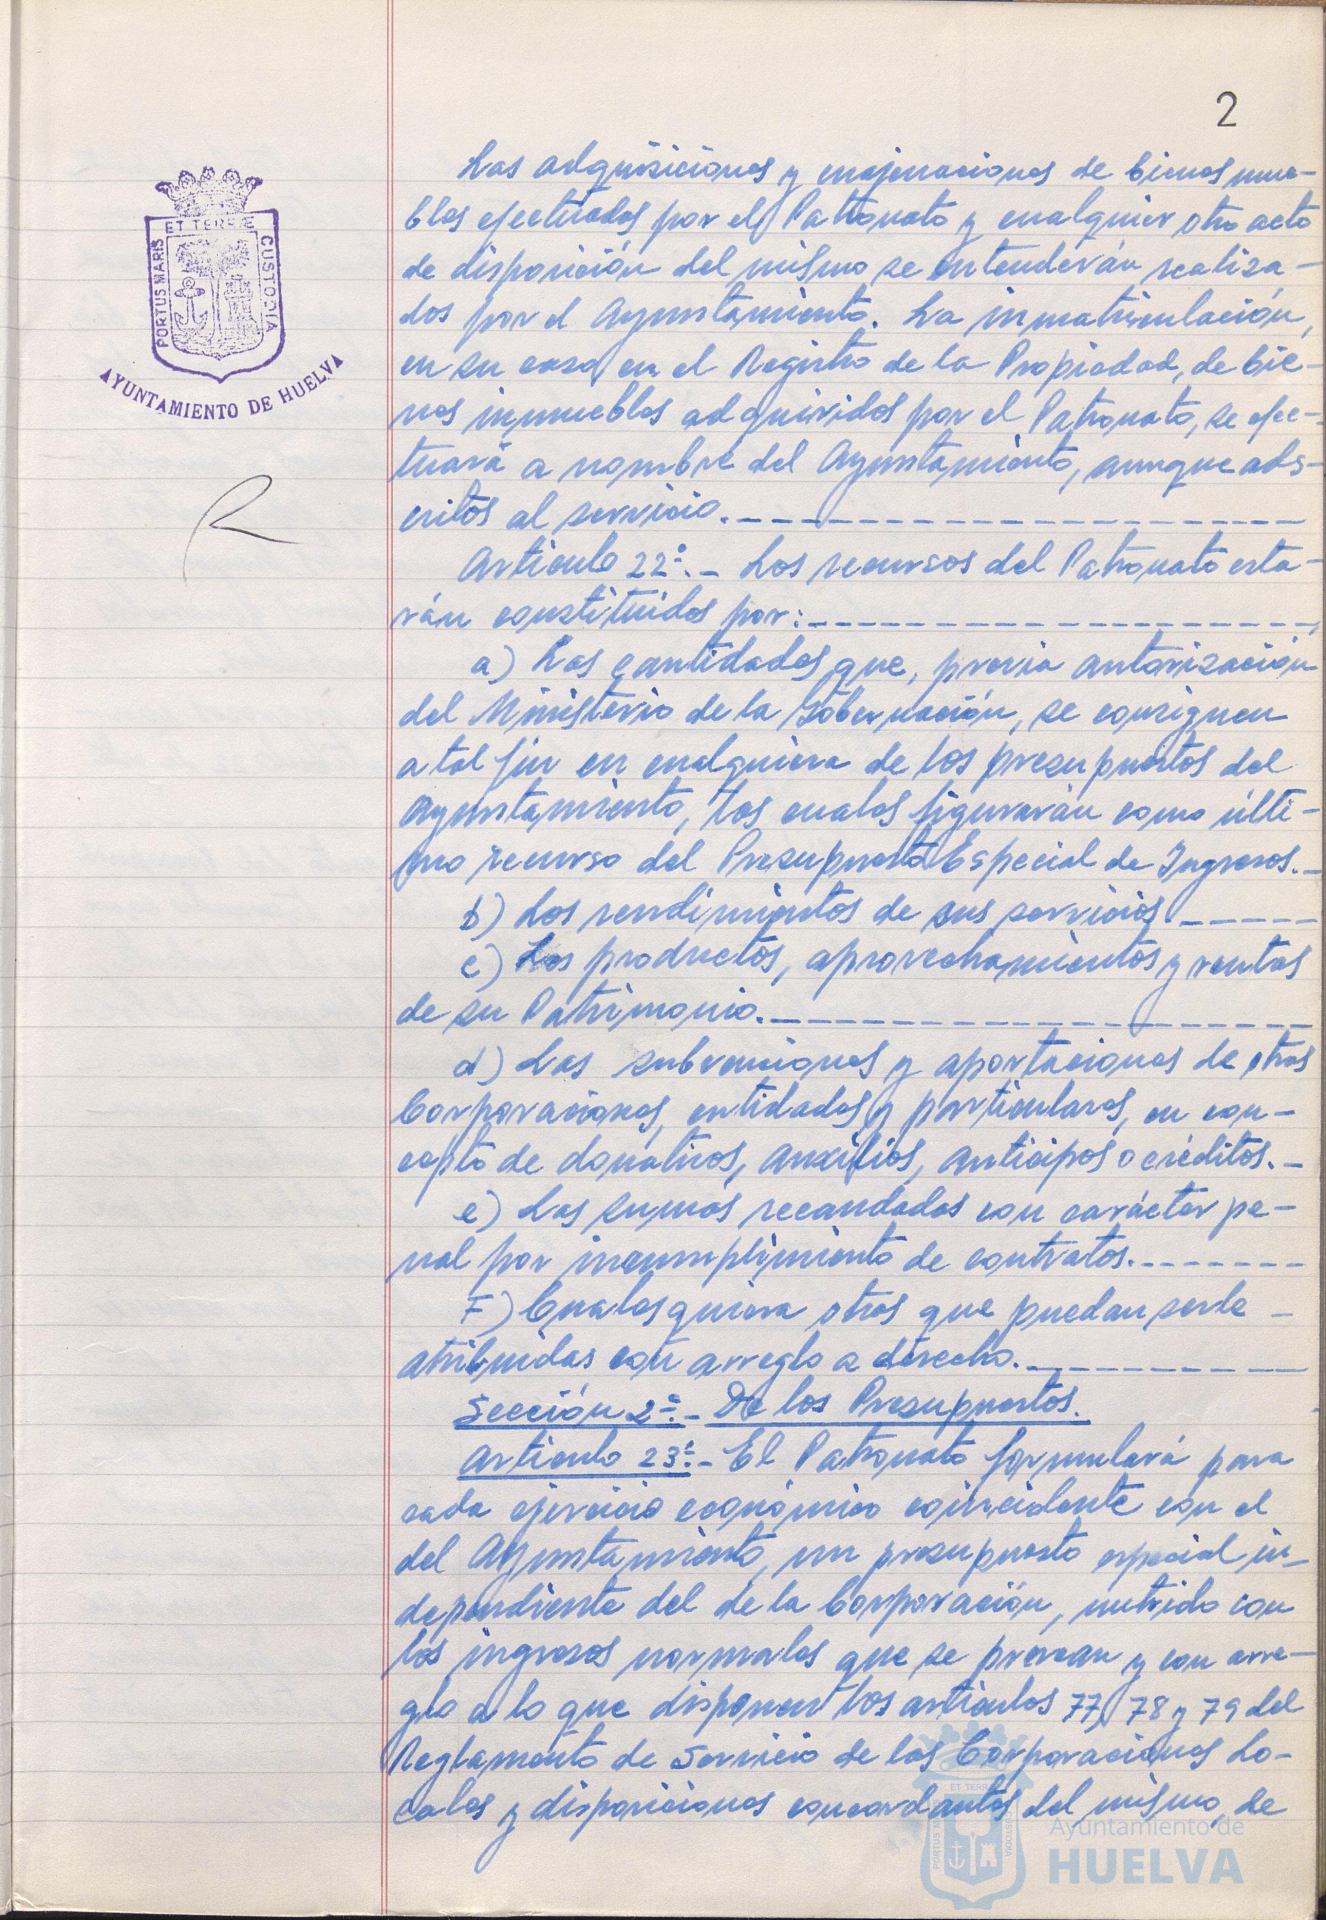 2
PORTUS MARIS ET TERRE CUSTODIA
AYUNTAMIENTO DE HUELVA
Las adquisiciones y enajenaciones de bienes mue-
bles efectuados por el Patronato y cualquier otro acto
de disposición del mismo se entenderán realiza-
dos por el Ayuntamiento. La inmatriculación,
en su caso, en el Registro de la Propiedad, de bie-
nes inmuebles adquiridos por el Patronato, se efec-
tuará a nombre del Ayuntamiento, aunque ads-
critos al servicio.
Artículo 22º.- Los recursos del Patronato esta-
rán constituidos por:
a) Las cantidades que, previa autorización
del Ministerio de la Gobernación, se consignen
a tal fin en cualquiera de los presupuestos del
Ayuntamiento, los cuales figurarán como últi-
mo recurso del Presupuesto Especial de Ingresos.-
b) Los rendimientos de sus servicios.
c) Los productos, aprovechamientos y rentas
de su Patrimonio.
d) Las subvenciones y aportaciones de otras
Corporaciones, entidades y particulares, en con-
cepto de donativos, auxilios, anticipos o créditos.-
e) Las sumas recaudadas con carácter pe-
nal por incumplimiento de contratos.
F) Cualesquiera otros que puedan serle -
atribuidas con arreglo a derecho.
Sección 2ª.- De los Presupuestos.
Artículo 23º.- El Patronato formulará para
cada ejercicio económico coincidente con el
del Ayuntamiento, un presupuesto especial in-
dependiente del de la Corporación, nutrido con
los ingresos normales que se prevean y con arre-
glo a lo que disponen los artículos 77, 78 y 79 del
Reglamento de Servicio de las Corporaciones Lo-
cales y disposiciones concordantes del mismo, de
Ayuntamiento de
HUELVA